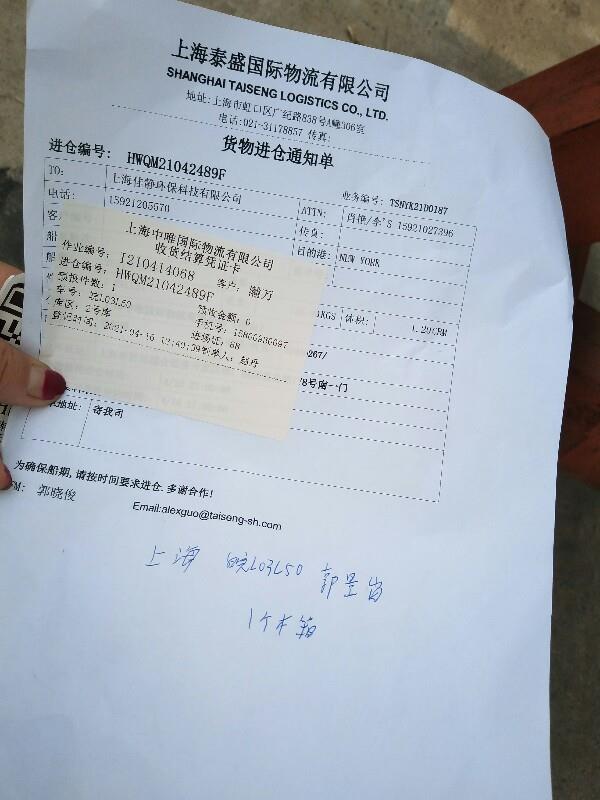 上海泰盛国际物流有限公司
SHANGHAI TAISENG LOGISTICS CO., LTD.
地址:上海市虹口区广纪路838号A幢306室
电话:021-31178857 传真:
货物进仓通知单
进仓编号: HWQM21042489F
业务编号: TSNYK21D0187
TO: 上海佳静环保科技有限公司
ATTN: 肖艳/李'S 15921027396
电话: 15921205570
传真:
目的港: NEW YORK
KGS 体积: 1.20CBM
267/
78号南一门
地址: 寄我司
上海中雎国际物流有限公司
收货结算凭证卡
作业编号: I210414068 客户: 瀚万
进仓编号: HWQM21042489F
预报件数: 1 预收金额: 0
车号: 皖L03L50
库区: 2号库 进场证: 6B
登记时间: 2021-04-16 12:49:39 制单人: 赵丹
为确保船期,请按时间要求进仓.多谢合作!
郭晓俊
Email:alexguo@taiseng-sh.com
上海 皖L03L50
1个木箱